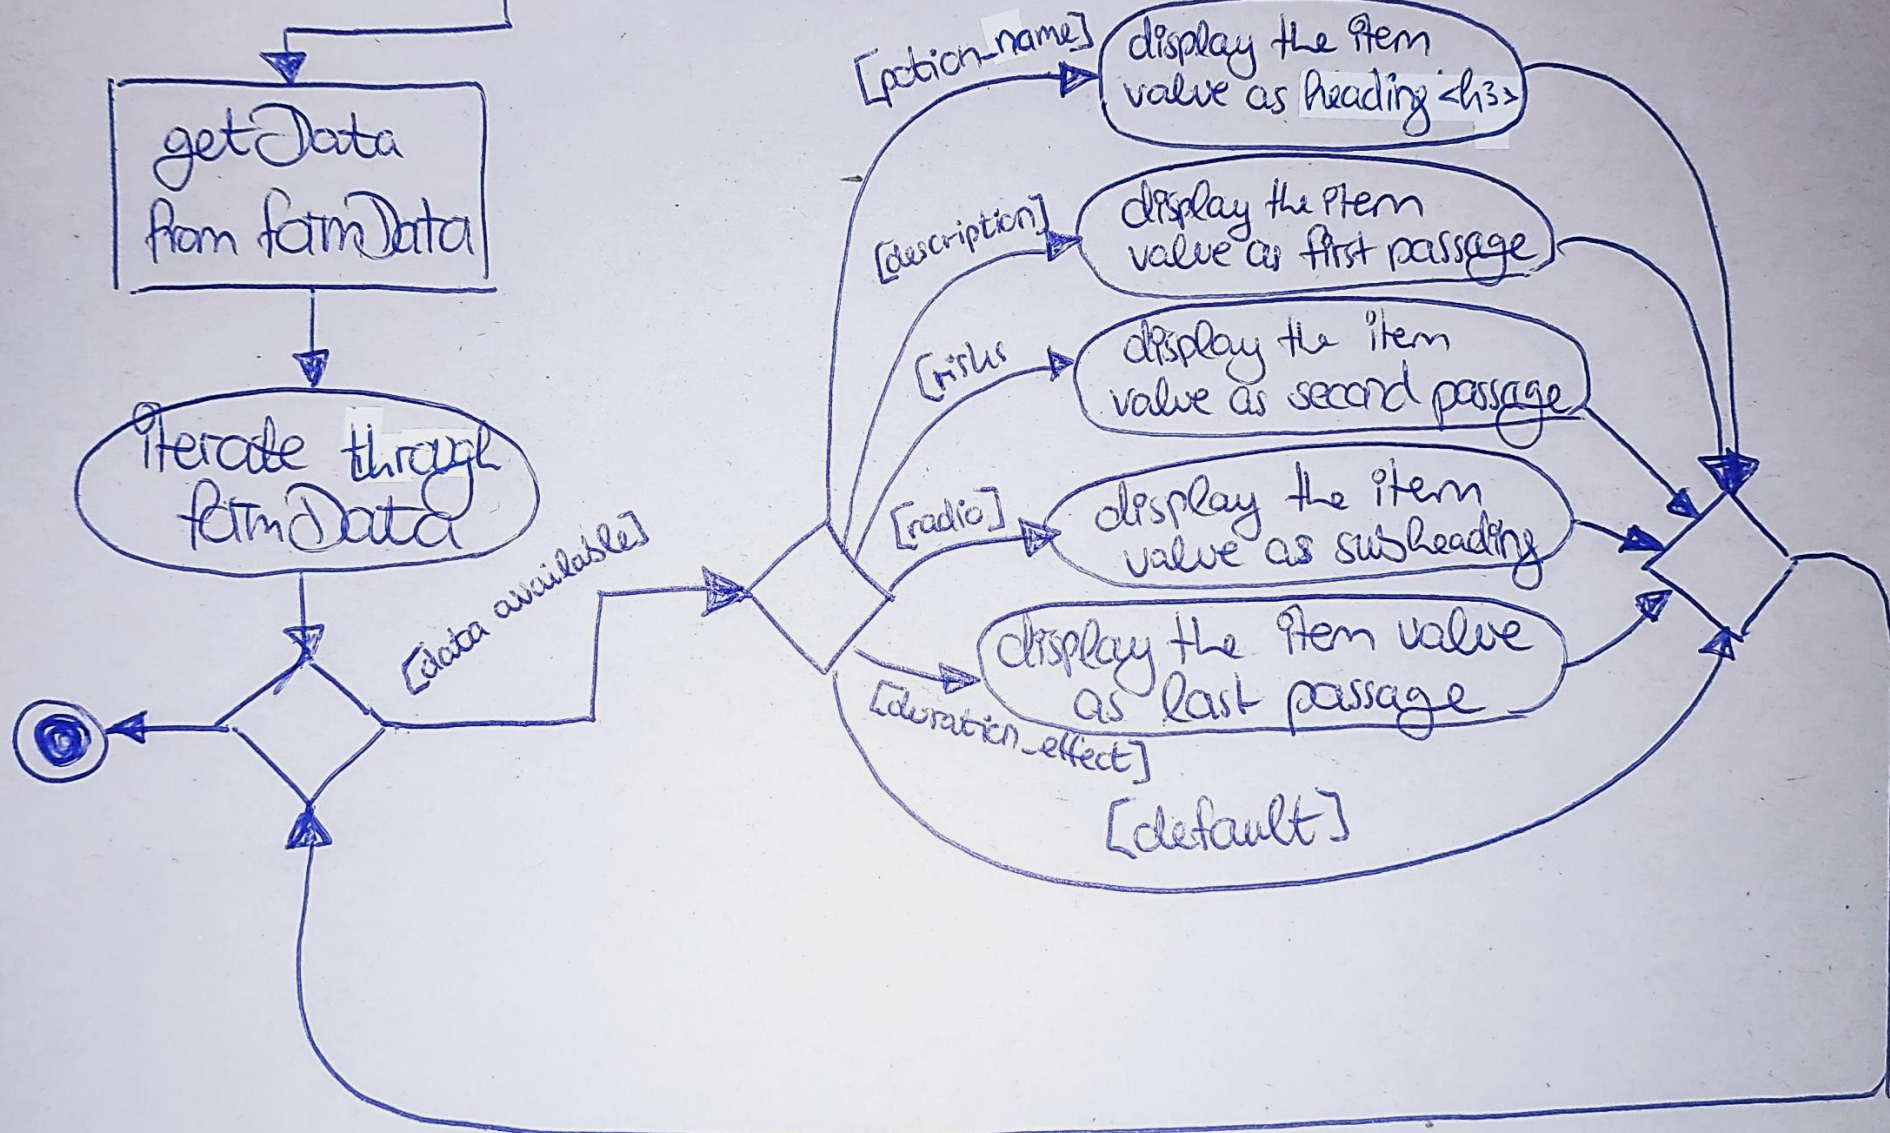 getData
from formData
iterate through
formData
[data available]
[potion_name]
display the item
value as heading <h3>
[description]
display the item
value as first passage
[risks
display the item
value as second passage
[radio]
display the item
value as subheading
[duration_effect]
display the item value
as last passage
[default]